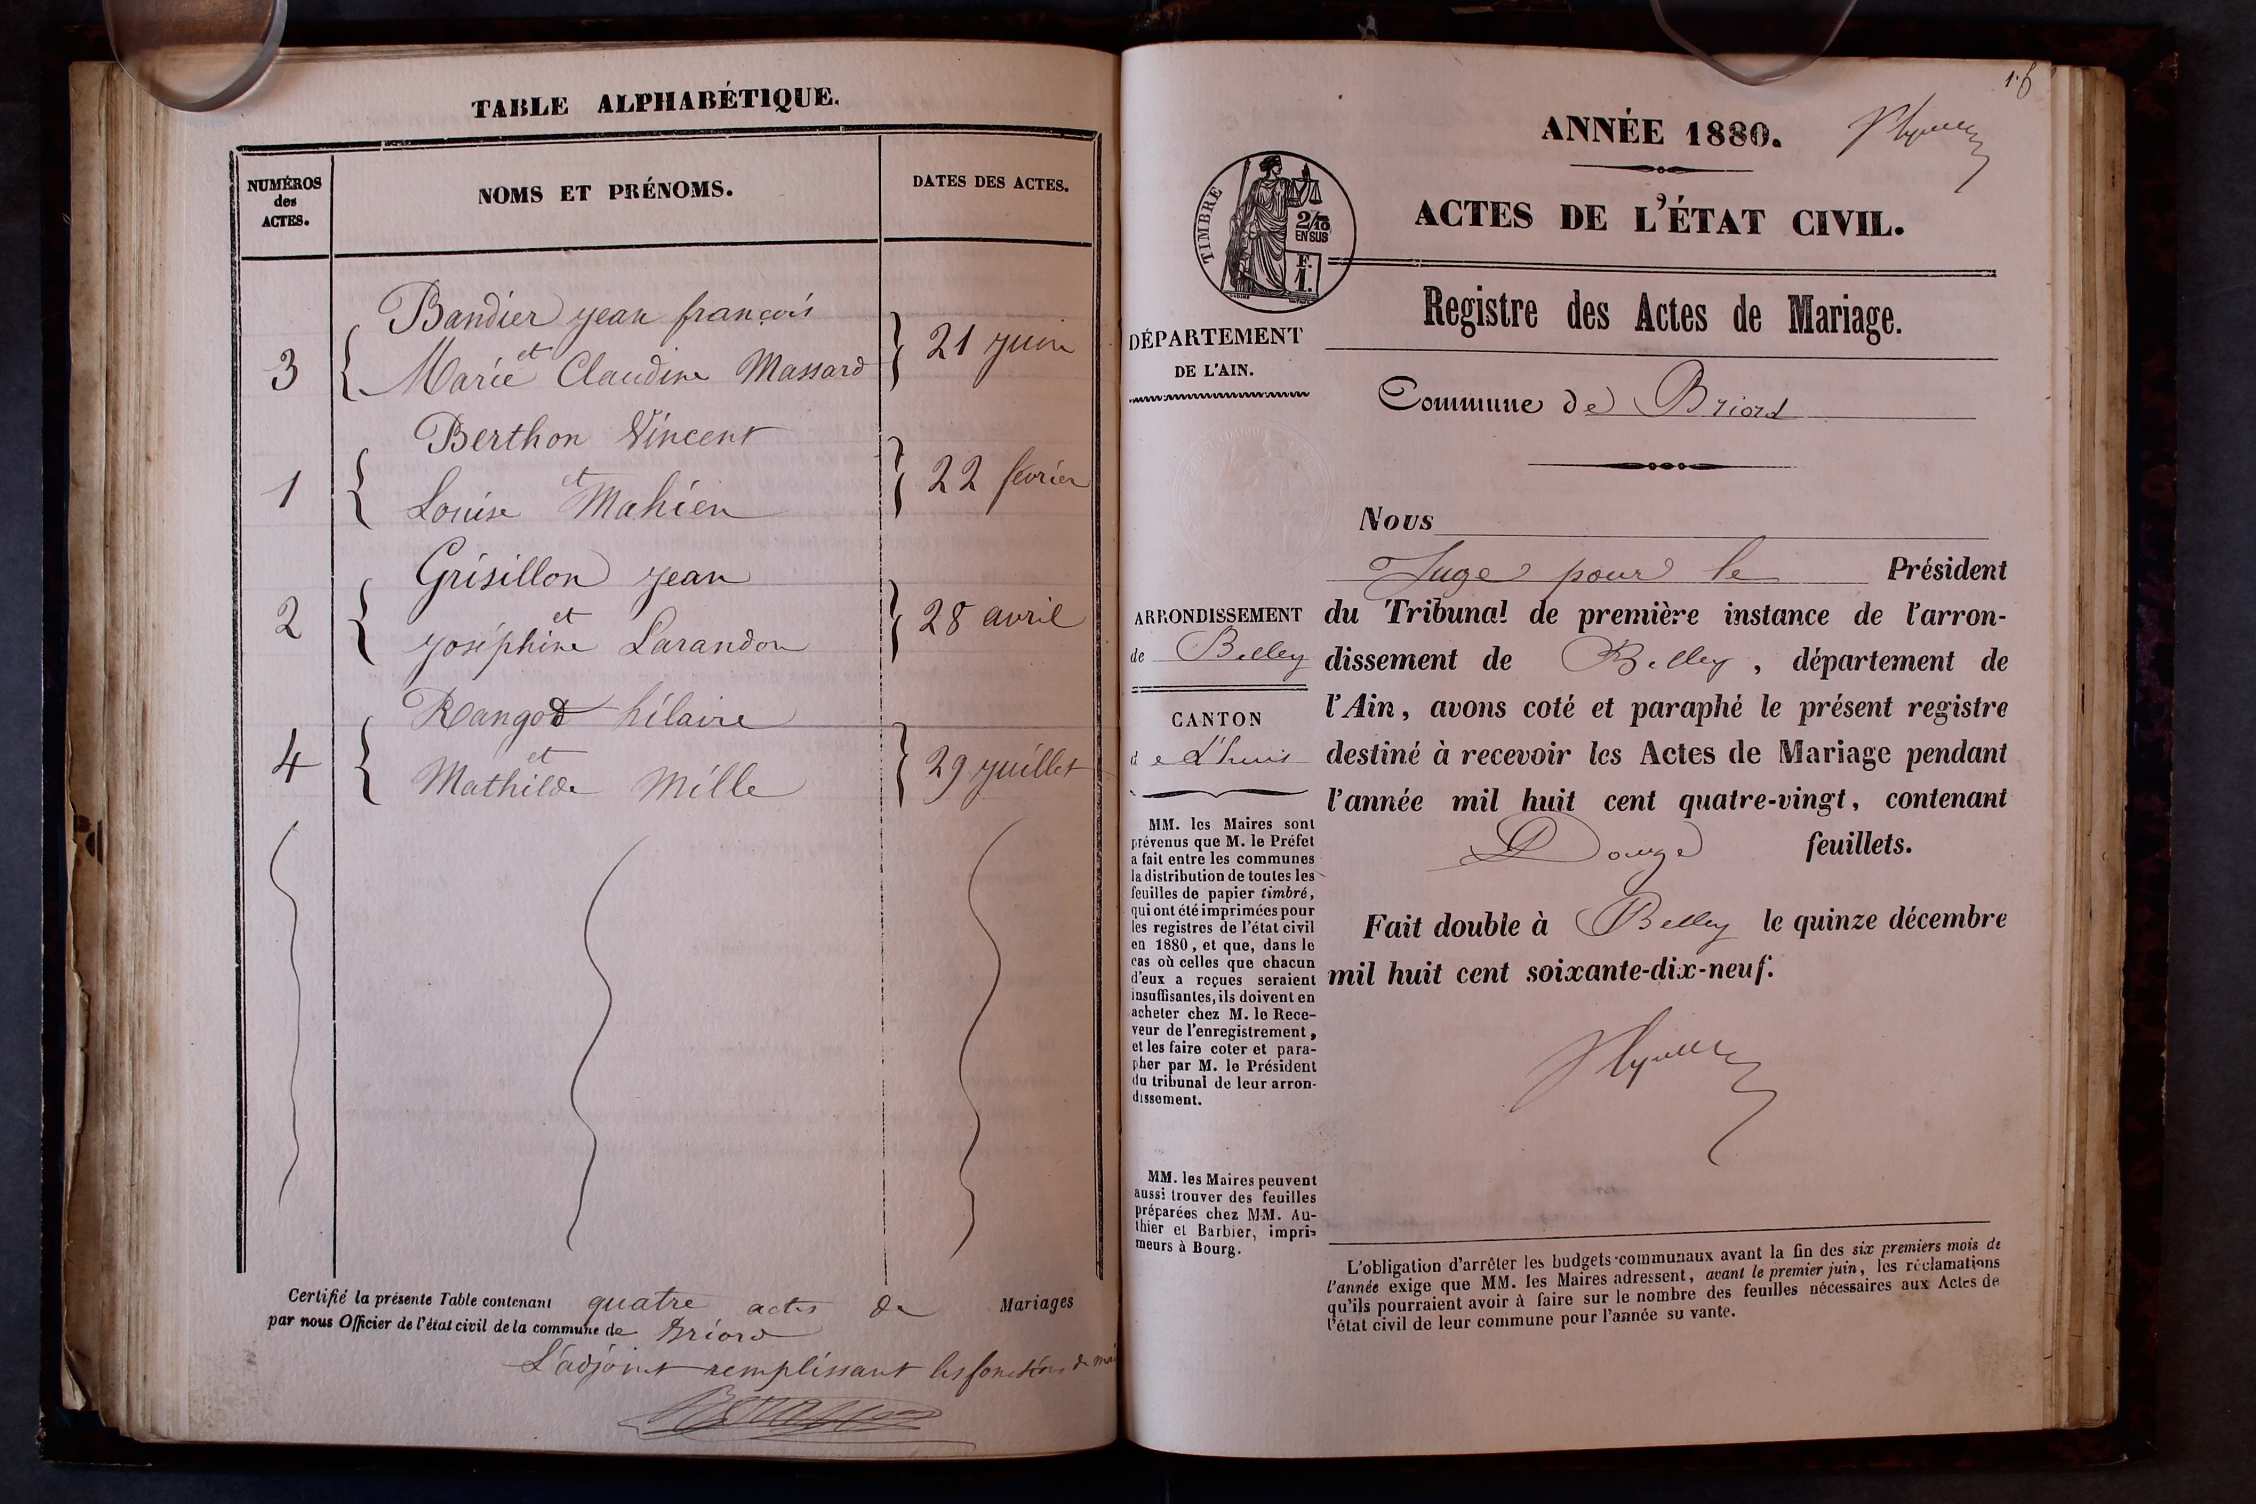 TABLE ALPHABÉTIQUE.
NUMÉROS
des
ACTES.
NOMS ET PRÉNOMS.
DATES DES ACTES.
Bandier jean françois
3 { et } 21 juin
Marie Claudine Massard
Berthon Vincent
1 { et } 22 février
Louise Mahien
Grisillon jean
2 { et } 28 avril
joséphine Larandon
Rangod hilaire
4 { et } 29 juillet
Mathilde Mille
Certifié la présente Table contenant quatre actes de Mariages
par nous Officier de l'état civil de la commune de Briord
L'adjoint remplissant les fonctions de
ANNÉE 1880.
ACTES DE L'ÉTAT CIVIL.
TIMBRE
2/10
EN SUS
F.
1.
Registre des Actes de Mariage.
DÉPARTEMENT
DE L'AIN.
Commune de Briord
ARRONDISSEMENT
de Belley
CANTON
de L'huis
MM. les Maires sont
prévenus que M. le Préfet
a fait entre les communes
la distribution de toutes les
feuilles de papier timbré,
qui ont été imprimées pour
les registres de l'état civil
en 1880, et que, dans le
cas où celles que chacun
d'eux a reçues seraient
insuffisantes, ils doivent en
acheter chez M. le Rece-
veur de l'enregistrement,
et les faire coter et para-
pher par M. le Président
du tribunal de leur arron-
dissement.
MM. les Maires peuvent
aussi trouver des feuilles
préparées chez MM. Au-
thier et Barbier, impri-
meurs à Bourg.
Nous
Juge pour le Président
du Tribunal de première instance de l'arron-
dissement de Belley, département de
l'Ain, avons coté et paraphé le présent registre
destiné à recevoir les Actes de Mariage pendant
l'année mil huit cent quatre-vingt, contenant
Douze feuillets.
Fait double à Belley le quinze décembre
mil huit cent soixante-dix-neuf.
L'obligation d'arrêter les budgets communaux avant la fin des six premiers mois de
l'année exige que MM. les Maires adressent, avant le premier juin, les réclamations
qu'ils pourraient avoir à faire sur le nombre des feuilles nécessaires aux Actes de
l'état civil de leur commune pour l'année su vante.